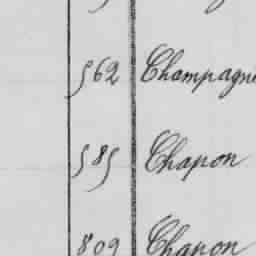 562 Champagne
585 Chapon
809 Chapon